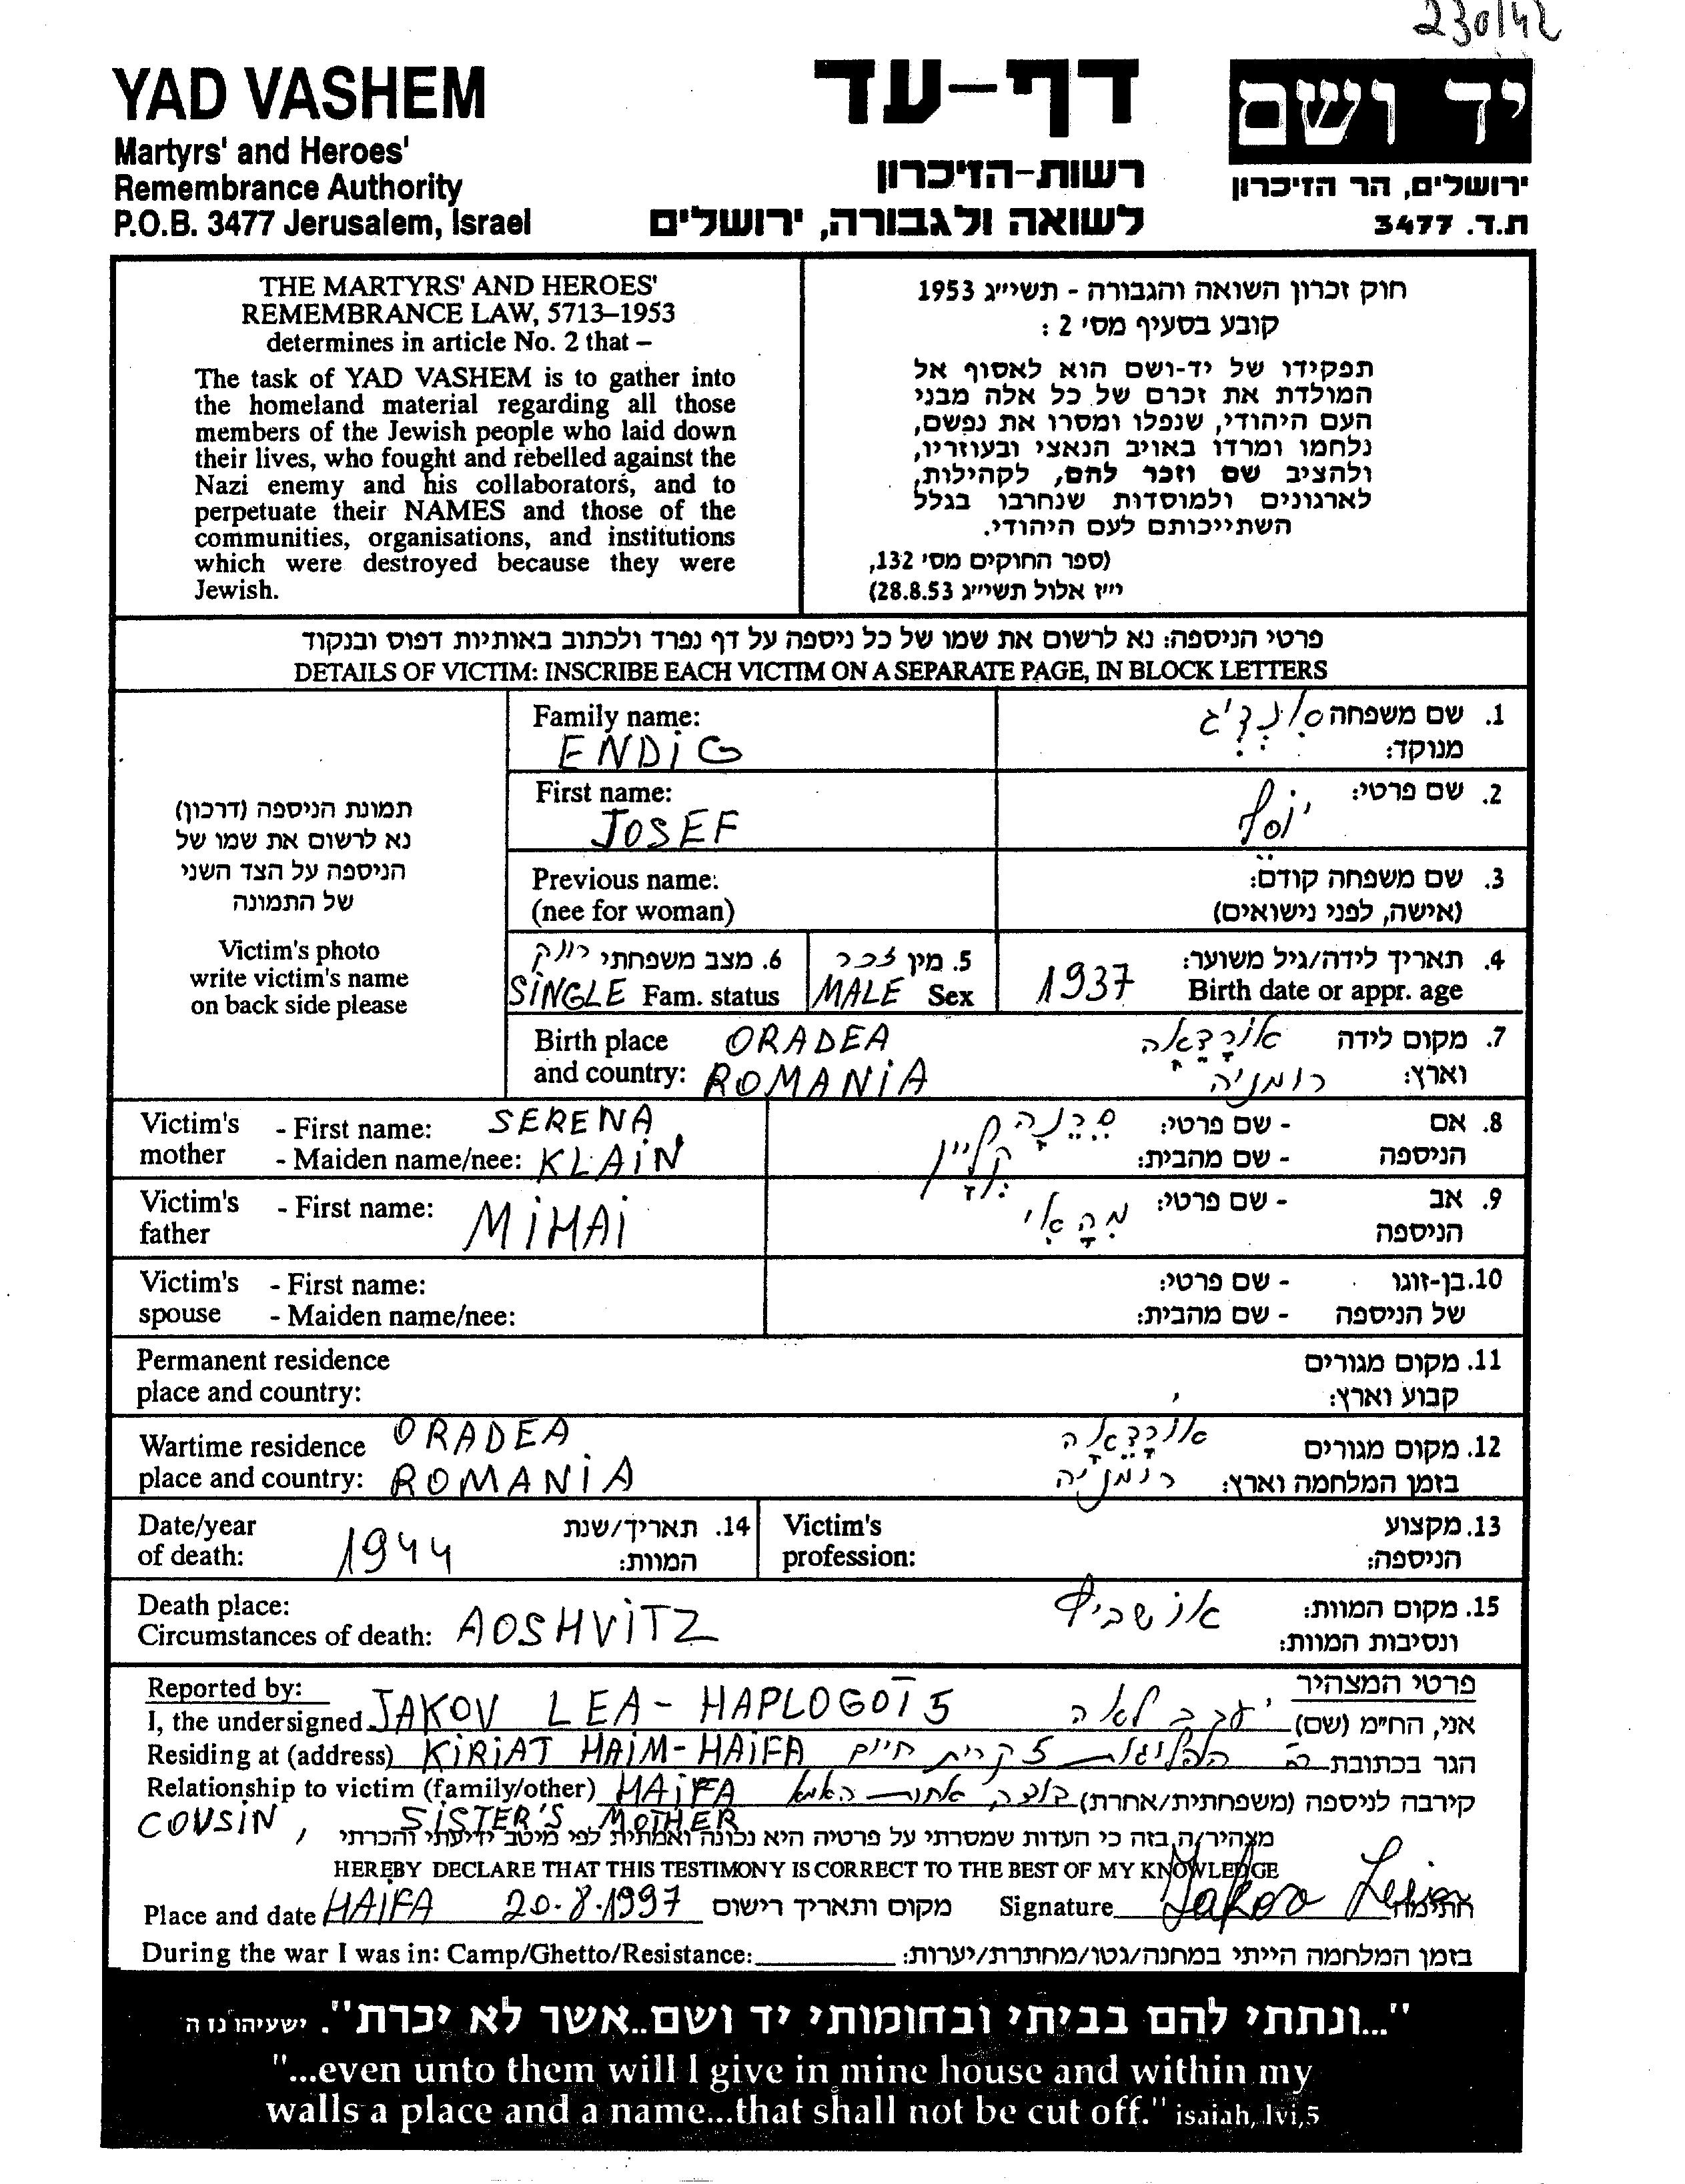 230/42
YAD VASHEM
Martyrs' and Heroes'
Remembrance Authority
P.O.B. 3477 Jerusalem, Israel
דף-עד
רשות-הזיכרון
לשואה ולגבורה, ירושלים
יד ושם
ירושלים, הר הזיכרון
ת.ד. 3477
THE MARTYRS' AND HEROES'
REMEMBRANCE LAW, 5713–1953
determines in article No. 2 that –
The task of YAD VASHEM is to gather into
the homeland material regarding all those
members of the Jewish people who laid down
their lives, who fought and rebelled against the
Nazi enemy and his collaborators, and to
perpetuate their NAMES and those of the
communities, organisations, and institutions
which were destroyed because they were
Jewish.
חוק זכרון השואה והגבורה - תשי״ג 1953
קובע בסעיף מס׳ 2 :
תפקידו של יד-ושם הוא לאסוף אל
המולדת את זכרם של כל אלה מבני
העם היהודי, שנפלו ומסרו את נפשם,
נלחמו ומרדו באויב הנאצי ובעוזריו,
ולהציב שם וזכר להם, לקהילות,
לארגונים ולמוסדות שנחרבו בגלל
השתייכותם לעם היהודי.
(ספר החוקים מס׳ 132,
י״ז אלול תשי״ג 28.8.53)
פרטי הניספה: נא לרשום את שמו של כל ניספה על דף נפרד ולכתוב באותיות דפוס ובנקוד
DETAILS OF VICTIM: INSCRIBE EACH VICTIM ON A SEPARATE PAGE, IN BLOCK LETTERS
תמונת הניספה (דרכון)
נא לרשום את שמו של
הניספה על הצד השני
של התמונה
Victim's photo
write victim's name
on back side please
Family name:
ENDiG
1. שם משפחה
מנוקד:
First name:
JOSEF
2. שם פרטי: יוסף
Previous name:
(nee for woman)
3. שם משפחה קודם:
(אישה, לפני נישואים)
6. מצב משפחתי רווק
SiNGLE Fam. status
5. מין זכר
MALE Sex
4. תאריך לידה/גיל משוער:
1937 Birth date or appr. age
Birth place ORADEA
and country: ROMANiA
7. מקום לידה אורדאה
וארץ: רומניה
Victim's - First name: SERENA
mother - Maiden name/nee: KLAiN
8. אם - שם פרטי: סרנה
הניספה - שם מהבית: קליין
Victim's - First name: MiHAi
father
9. אב - שם פרטי: מהאי
הניספה
Victim's - First name:
spouse - Maiden name/nee:
10. בן-זוגו - שם פרטי:
של הניספה - שם מהבית:
Permanent residence
place and country:
11. מקום מגורים
קבוע וארץ:
Wartime residence ORADEA
place and country: ROMANiA
12. מקום מגורים אורדאה
בזמן המלחמה וארץ: רומניה
Date/year
of death: 1944
14. תאריך/שנת
המוות:
Victim's
profession:
13. מקצוע
הניספה:
Death place:
Circumstances of death: AOSHViTZ
15. מקום המוות: אושביץ
ונסיבות המוות:
Reported by:
I, the undersigned JAKOV LEA - HAPLOGOT 5
פרטי המצהיר
אני, הח״מ (שם) יעקב לאה
Residing at (address) KiRiAT HAiM-HAiFA
הגר בכתובת הפלוגות 5 קרית חיים
Relationship to victim (family/other) HAiFA
קירבה לניספה (משפחתית/אחרת) אחות האמא
COUSiN, SiSTER'S MOTHER
מצהיר/ה בזה כי העדות שמסרתי על פרטיה היא נכונה ואמתית לפי מיטב ידיעתי והכרתי
HEREBY DECLARE THAT THIS TESTIMONY IS CORRECT TO THE BEST OF MY KNOWLEDGE
Place and date HAiFA 20.8.1997 מקום ותאריך רישום Signature Jakov חתימה
During the war I was in: Camp/Ghetto/Resistance: בזמן המלחמה הייתי במחנה/גטו/מחתרת/יערות:
"...ונתתי להם בביתי ובחומותי יד ושם..אשר לא יכרת". ישעיהו נו ה
"...even unto them will I give in mine house and within my
walls a place and a name...that shall not be cut off." isaiah, lvi,5